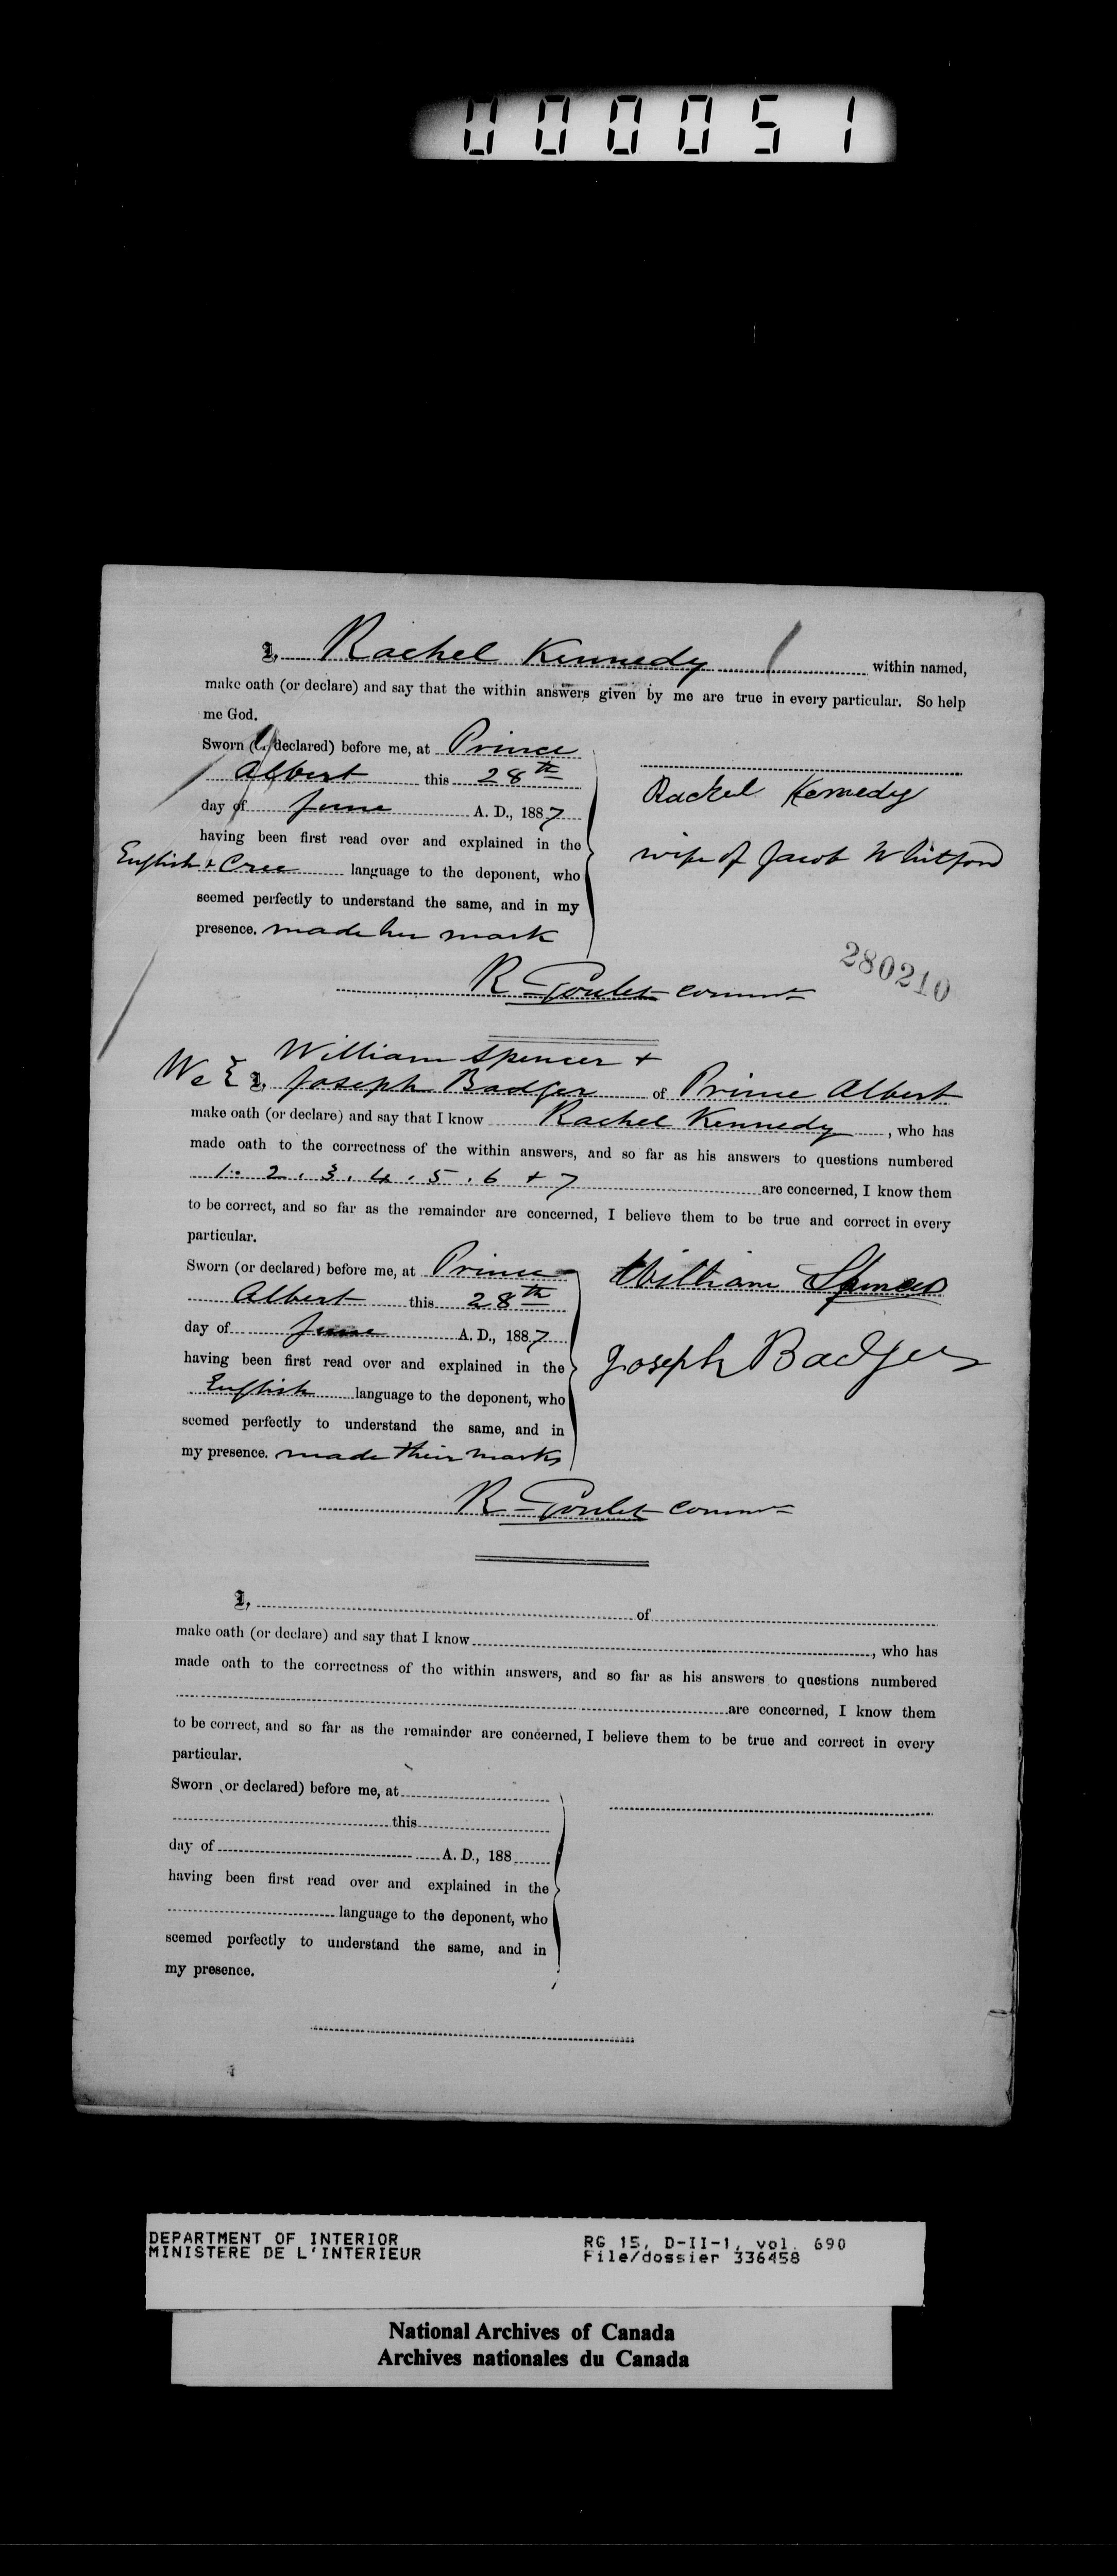 000051
I, Rachel Kennedy within named,
make oath (or declare) and say that the within answers given by me are true in every particular. So help
me God.
Sworn (or declared) before me, at Prince
Albert this 28th
day of June A. D., 1887
having been first read over and explained in the
English & Cree language to the deponent, who
seemed perfectly to understand the same, and in my
presence. made her mark
Rachel Kennedy
wife of Jacob Whitford
R Goulet comm
280210
William Spencer +
We { I, Joseph Badger of Prince Albert
make oath (or declare) and say that I know Rachel Kennedy, who has
made oath to the correctness of the within answers, and so far as his answers to questions numbered
1. 2. 3. 4. 5. 6 + 7 are concerned, I know them
to be correct, and so far as the remainder are concerned, I believe them to be true and correct in every
particular.
Sworn (or declared) before me, at Prince
Albert this 28th
day of June A. D., 1887
having been first read over and explained in the
English language to the deponent, who
seemed perfectly to understand the same, and in
my presence. made their marks
William Spencer
Joseph Badger
R Goulet comm
I, of
make oath (or declare) and say that I know , who has
made oath to the correctness of the within answers, and so far as his answers to questions numbered
are concerned, I know them
to be correct, and so far as the remainder are concerned, I believe them to be true and correct in every
particular.
Sworn (or declared) before me, at
this
day of A. D., 188
having been first read over and explained in the
language to the deponent, who
seemed perfectly to understand the same, and in
my presence.
DEPARTMENT OF INTERIOR
MINISTERE DE L'INTERIEUR
RG 15, D-II-1, vol. 690
File/dossier 336458
National Archives of Canada
Archives nationales du Canada